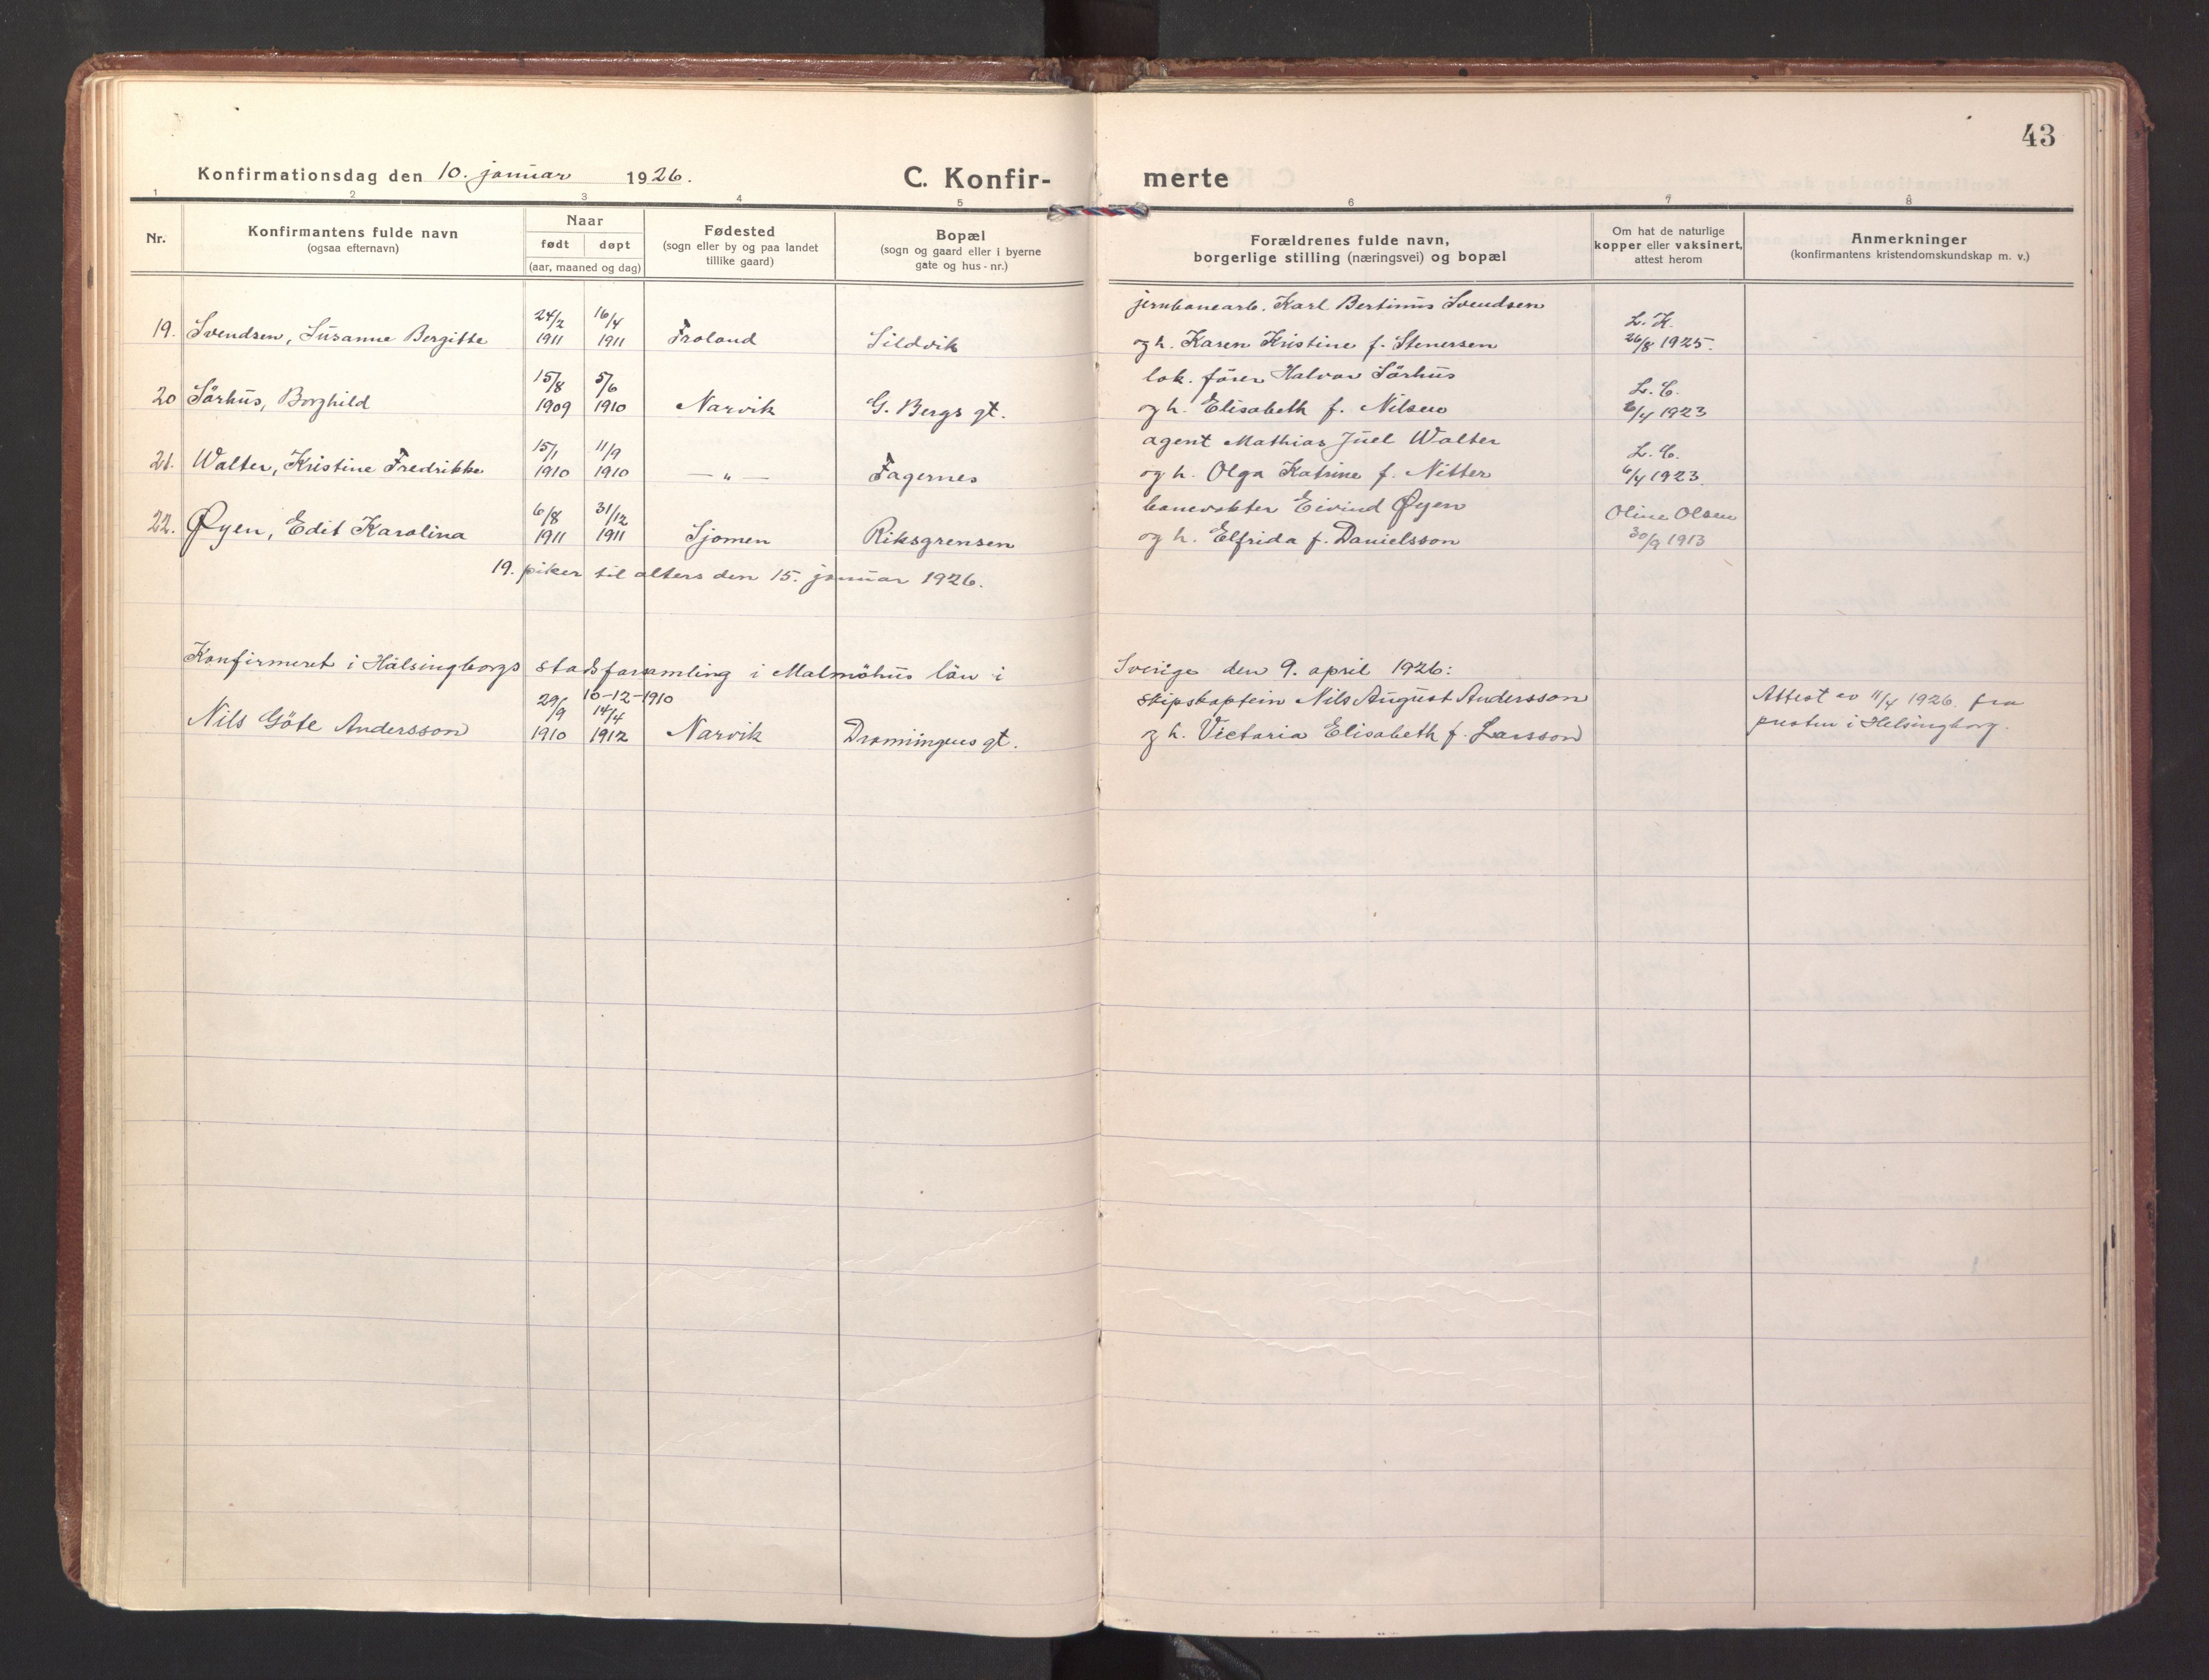 43
Konfirmationsdag den 10. januar 1926.
C. Konfir-merte
1 2 3 4 5 6 7 8
Nr.
Konfirmantens fulde navn
(ogsaa efternavn)
Naar
født døpt
(aar, maaned og dag)
Fødested
(sogn eller by og paa landet
tillike gaard)
Bopæl
(sogn og gaard eller i byerne
gate og hus-nr.)
Forældrenes fulde navn,
borgerlige stilling (næringsvei) og bopæl
Om hat de naturlige
kopper eller vaksinert,
attest herom
Anmerkninger
(konfirmantens kristendomskundskap m. v.)
24/2 16/4 jernbanearb. Karl Bertinus Svendsen L. K.
19. Svendsen, Susanne Bergitte 1911 1911 Froland Sildvik og h. Karen Kristine f. Stenersen 26/8 1925.
15/8 5/6 lok. fører Halvar Sörhus L. C.
20 Sörhus, Borghild 1909 1910 Narvik G. Bergs gt. og h. Elisabeth f. Nilsen 6/4 1923
15/1 11/9 agent Mathias Juel Walter L. C.
21. Walter, Kristine Fredrikke 1910 1910 — " — Fagernes og h. Olga Katrine f. Nitter 6/4 1923.
6/8 31/12 banevokter Eivind Øyen Oline Olsen
22. Øyen, Edit Karolina 1911 1911 Sjomen Riksgrensen og h. Elfrida f. Danielsson 30/9 1913
19. piker til alters den 15. januar 1926.
Konfirmeret i Hälsingborgs stadsförsamling i Malmöhus län i Sverige den 9. april 1926:
29/9 10-12-1910 14/4 skipskaptein Nils August Andersson Attest av 11/4 1926. fra
Nils Göte Andersson 1910 1912 Narvik Dronningens gt. og h. Victoria Elisabeth f. Larsson presten i Helsingborg.